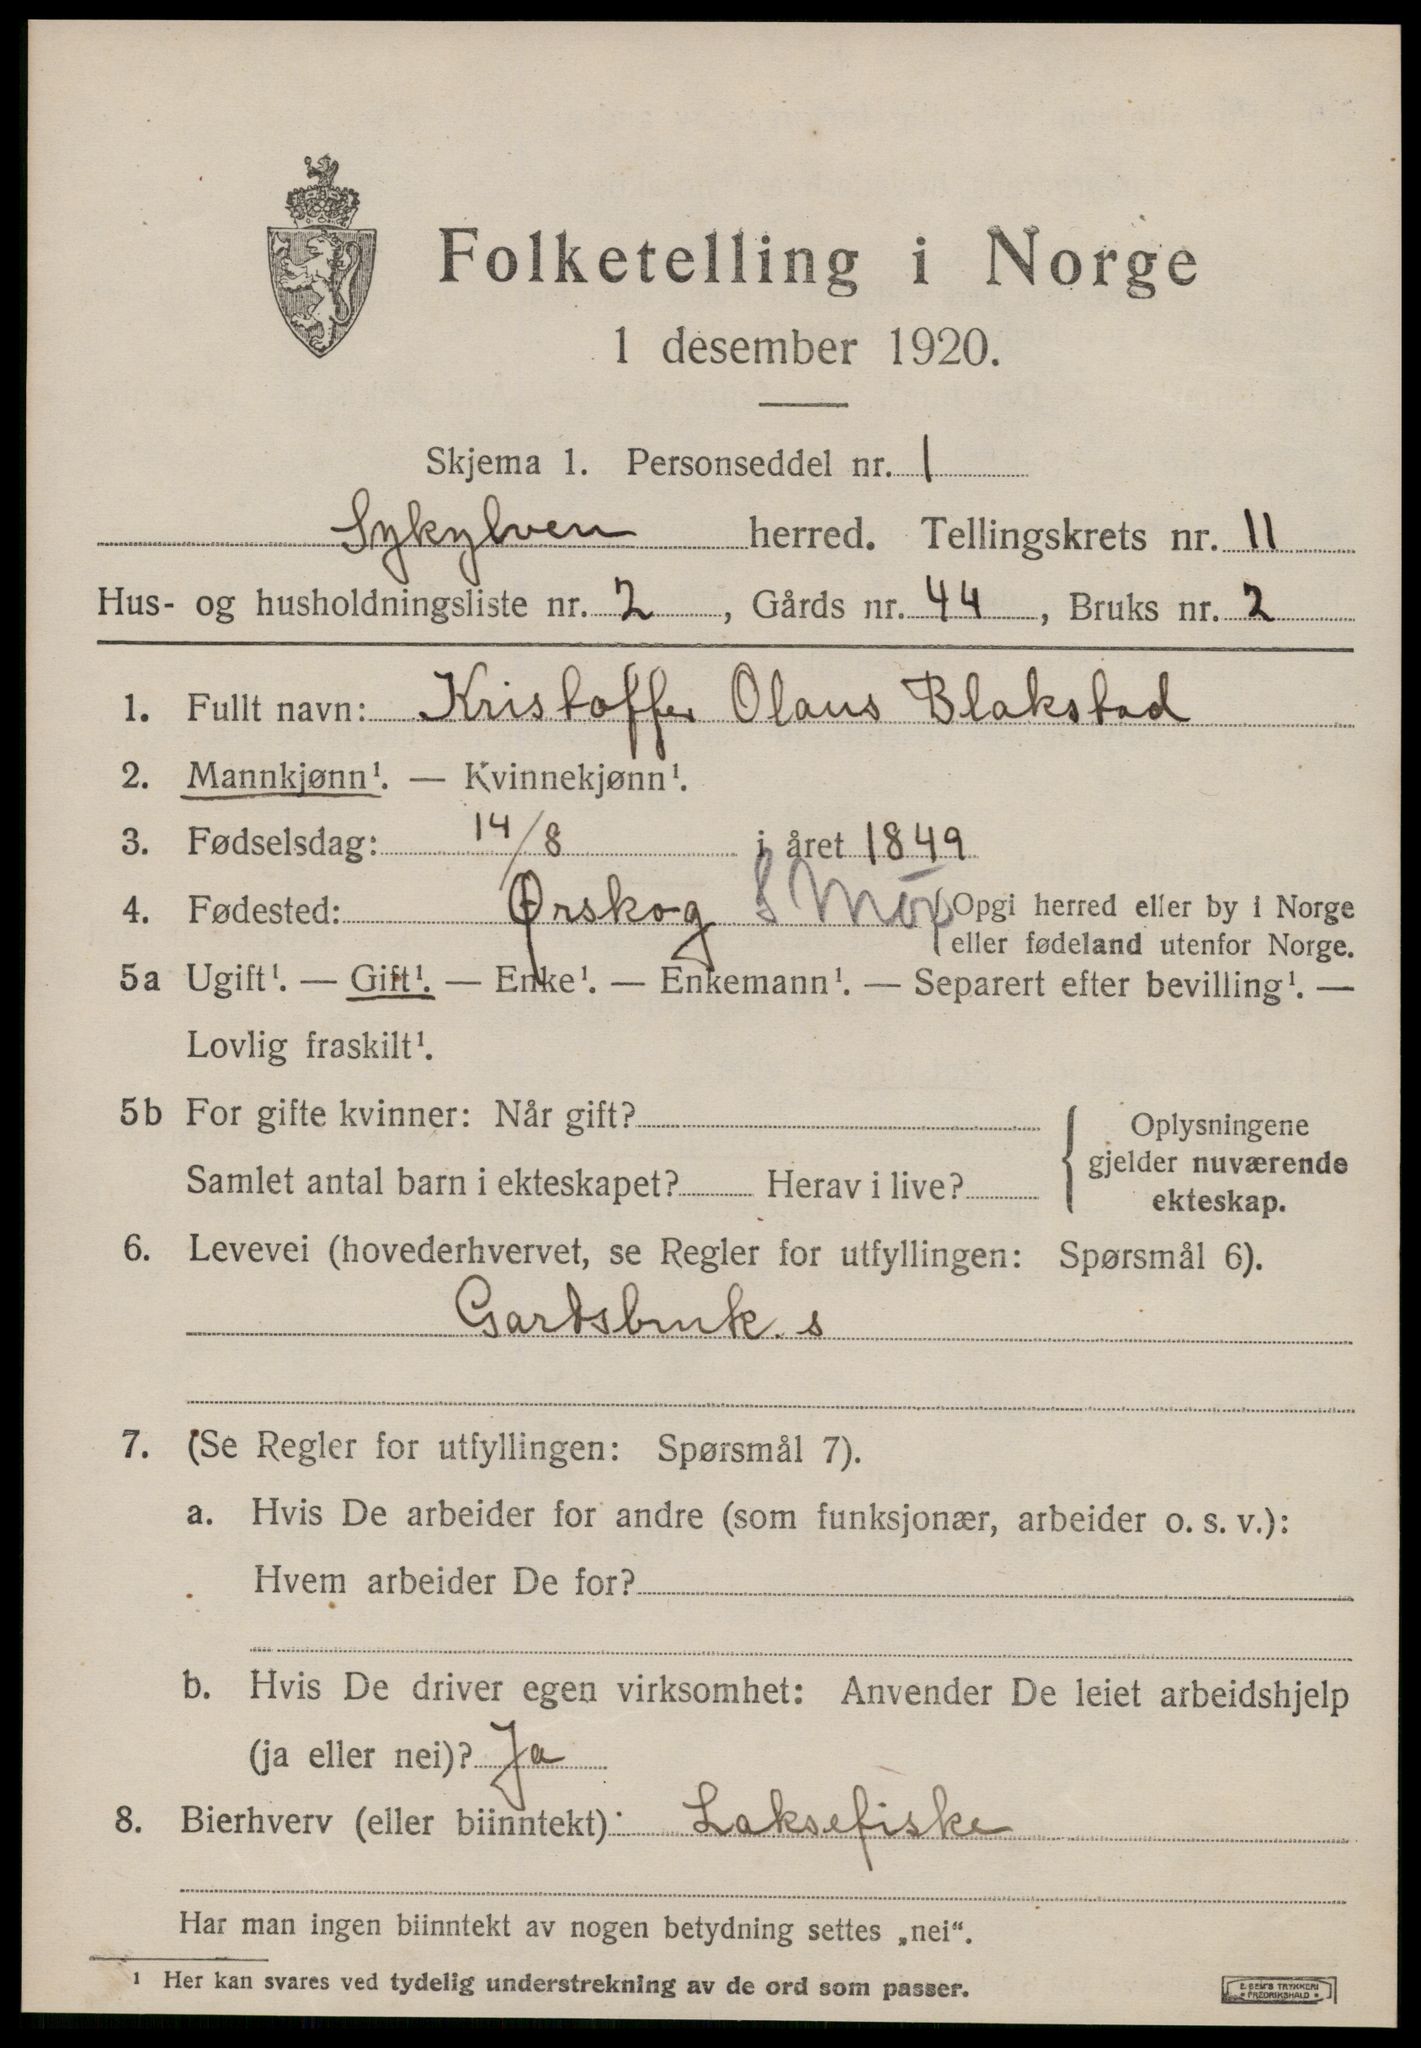 Folketelling i Norge
1 desember 1920.
Skjema 1. Personseddel nr. 1
Sykylven herred. Tellingskrets nr. 11
Hus- og husholdningsliste nr. 2, Gårds nr. 44, Bruks nr. 2
1. Fullt navn: Kristoffer Olaus Blakstad
2. Mannkjønn¹. — Kvinnekjønn¹.
3. Fødselsdag: 14/8 i året 1849
4. Fødested: Ørskog S Møre (Opgi herred eller by i Norge
eller fødeland utenfor Norge.
5a Ugift¹. — Gift¹. — Enke¹. — Enkemann¹. — Separert efter bevilling¹. —
Lovlig fraskilt¹.
5b For gifte kvinner: Når gift?
Samlet antal barn i ekteskapet? Herav i live?
{ Oplysningene
gjelder nuværende
ekteskap.
6. Levevei (hovederhvervet, se Regler for utfyllingen: Spørsmål 6).
Gartsbruk. s
7. (Se Regler for utfyllingen: Spørsmål 7).
a. Hvis De arbeider for andre (som funksjonær, arbeider o. s. v.):
Hvem arbeider De for?
b. Hvis De driver egen virksomhet: Anvender De leiet arbeidshjelp
(ja eller nei)? Ja
8. Bierhverv (eller biinntekt): Laksefiske
Har man ingen biinntekt av nogen betydning settes „nei“.
¹ Her kan svares ved tydelig understrekning av de ord som passer.
E. SEM'S TRYKKERI
FREDRIKSHALD